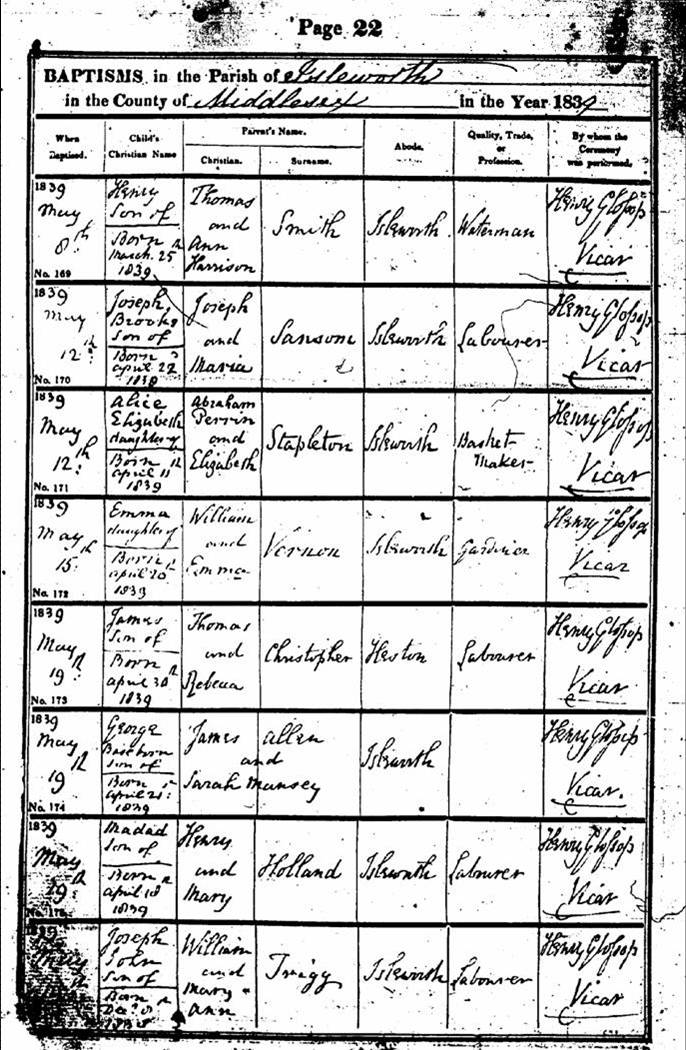 Page 22
BAPTISMS in the Parish of Isleworth
in the County of Middlesex in the Year 1839
When Baptised.
Child's Christian Name
Parent's Name.
Christian.
Surname.
Abode.
Quality, Trade, or Profession.
By whom the Ceremony was performed.
1839
May
8th
No. 169
Henry
Son of
Born
March 25th
1839
Thomas
and
Ann
Harrison
Smith
Isleworth
Waterman
Henry Glossop
Vicar
1839
May
12th
No. 170
Joseph
Brooks
Son of
Born
april 22
1838
Joseph
and
Maria
Sansom
Isleworth
Labourer
Henry Glossop
Vicar
1839
May
12th
No. 171
Alice
Elizabeth
daughter of
Born
april 11th
1839
Abraham
Perrin
and
Elizabeth
Stapleton
Isleworth
Basket
Maker
Henry Glossop
Vicar
1839
May
15th
No. 172
Emma
daughter of
Born
april 20th
1839
William
and
Emma
Vernon
Isleworth
Gardiner
Henry Glossop
Vicar
1839
May
19th
No. 173
James
Son of
Born
april 30th
1839
Thomas
and
Rebecca
Christopher
Heston
Labourer
Henry Glossop
Vicar
1839
May
19th
No. 174
George
Baseborn
Son of
Born
april 21st
1839
James allen
and
Sarah Munsey
Isleworth
Henry Glossop
Vicar.
1839
May
19th
Son of
Born
april 18th
1839
Henry
and
Mary
Holland
Isleworth
Labourer
Henry Glossop
Vicar
1839
May
Joseph
John
Son of
Born
William
and
Mary
Ann
Trigg
Isleworth
Labourer
Henry Glossop
Vicar